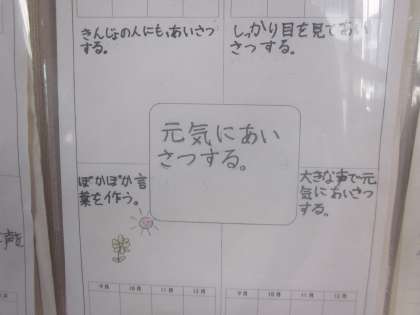 きんじょの人にも、あいさつ
する。
しっかり目を見てあい
さつする。
元気にあい
さつする。
ぽかぽか言
葉を作う。
大きな声で元
気にあいさつ
する。
9月 10月 11月 12月
9月 10月 11月 12月